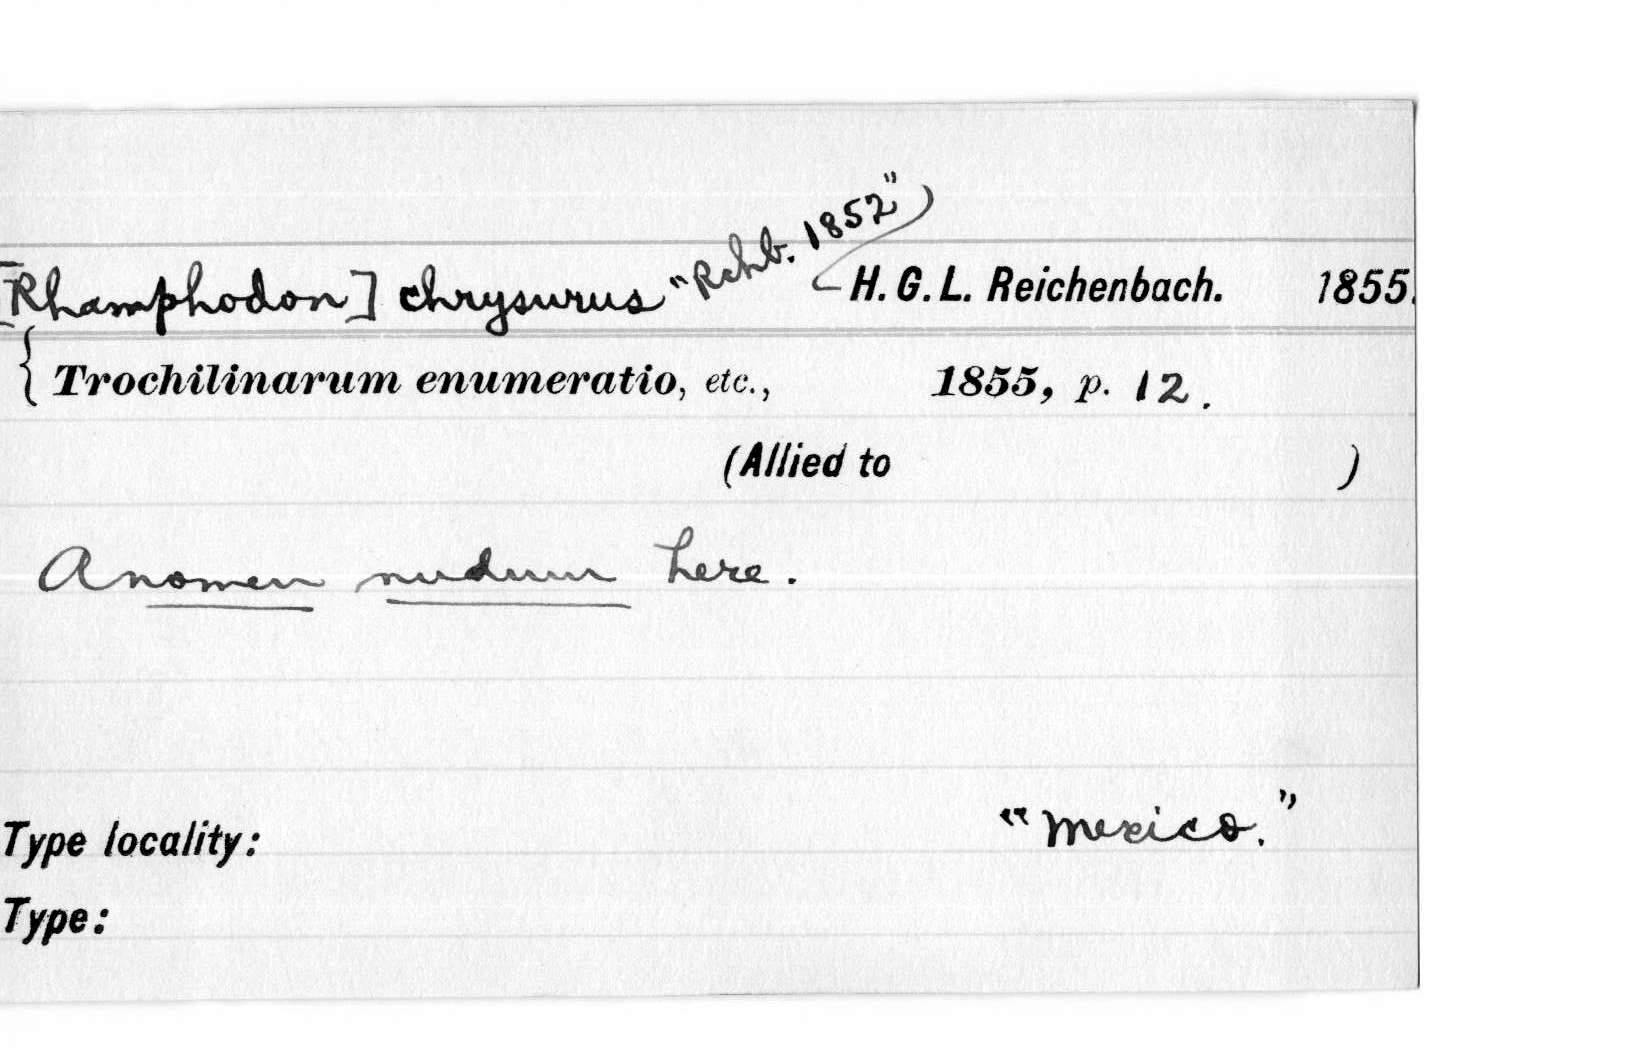 [Rhamphodon] chrysurus "Rchb. 1852") H. G. L. Reichenbach. 1855.
{ Trochilinarum enumeratio, etc., 1855, p. 12.
(Allied to )
A nomen nudum here.
Type locality: "Mexico."
Type: